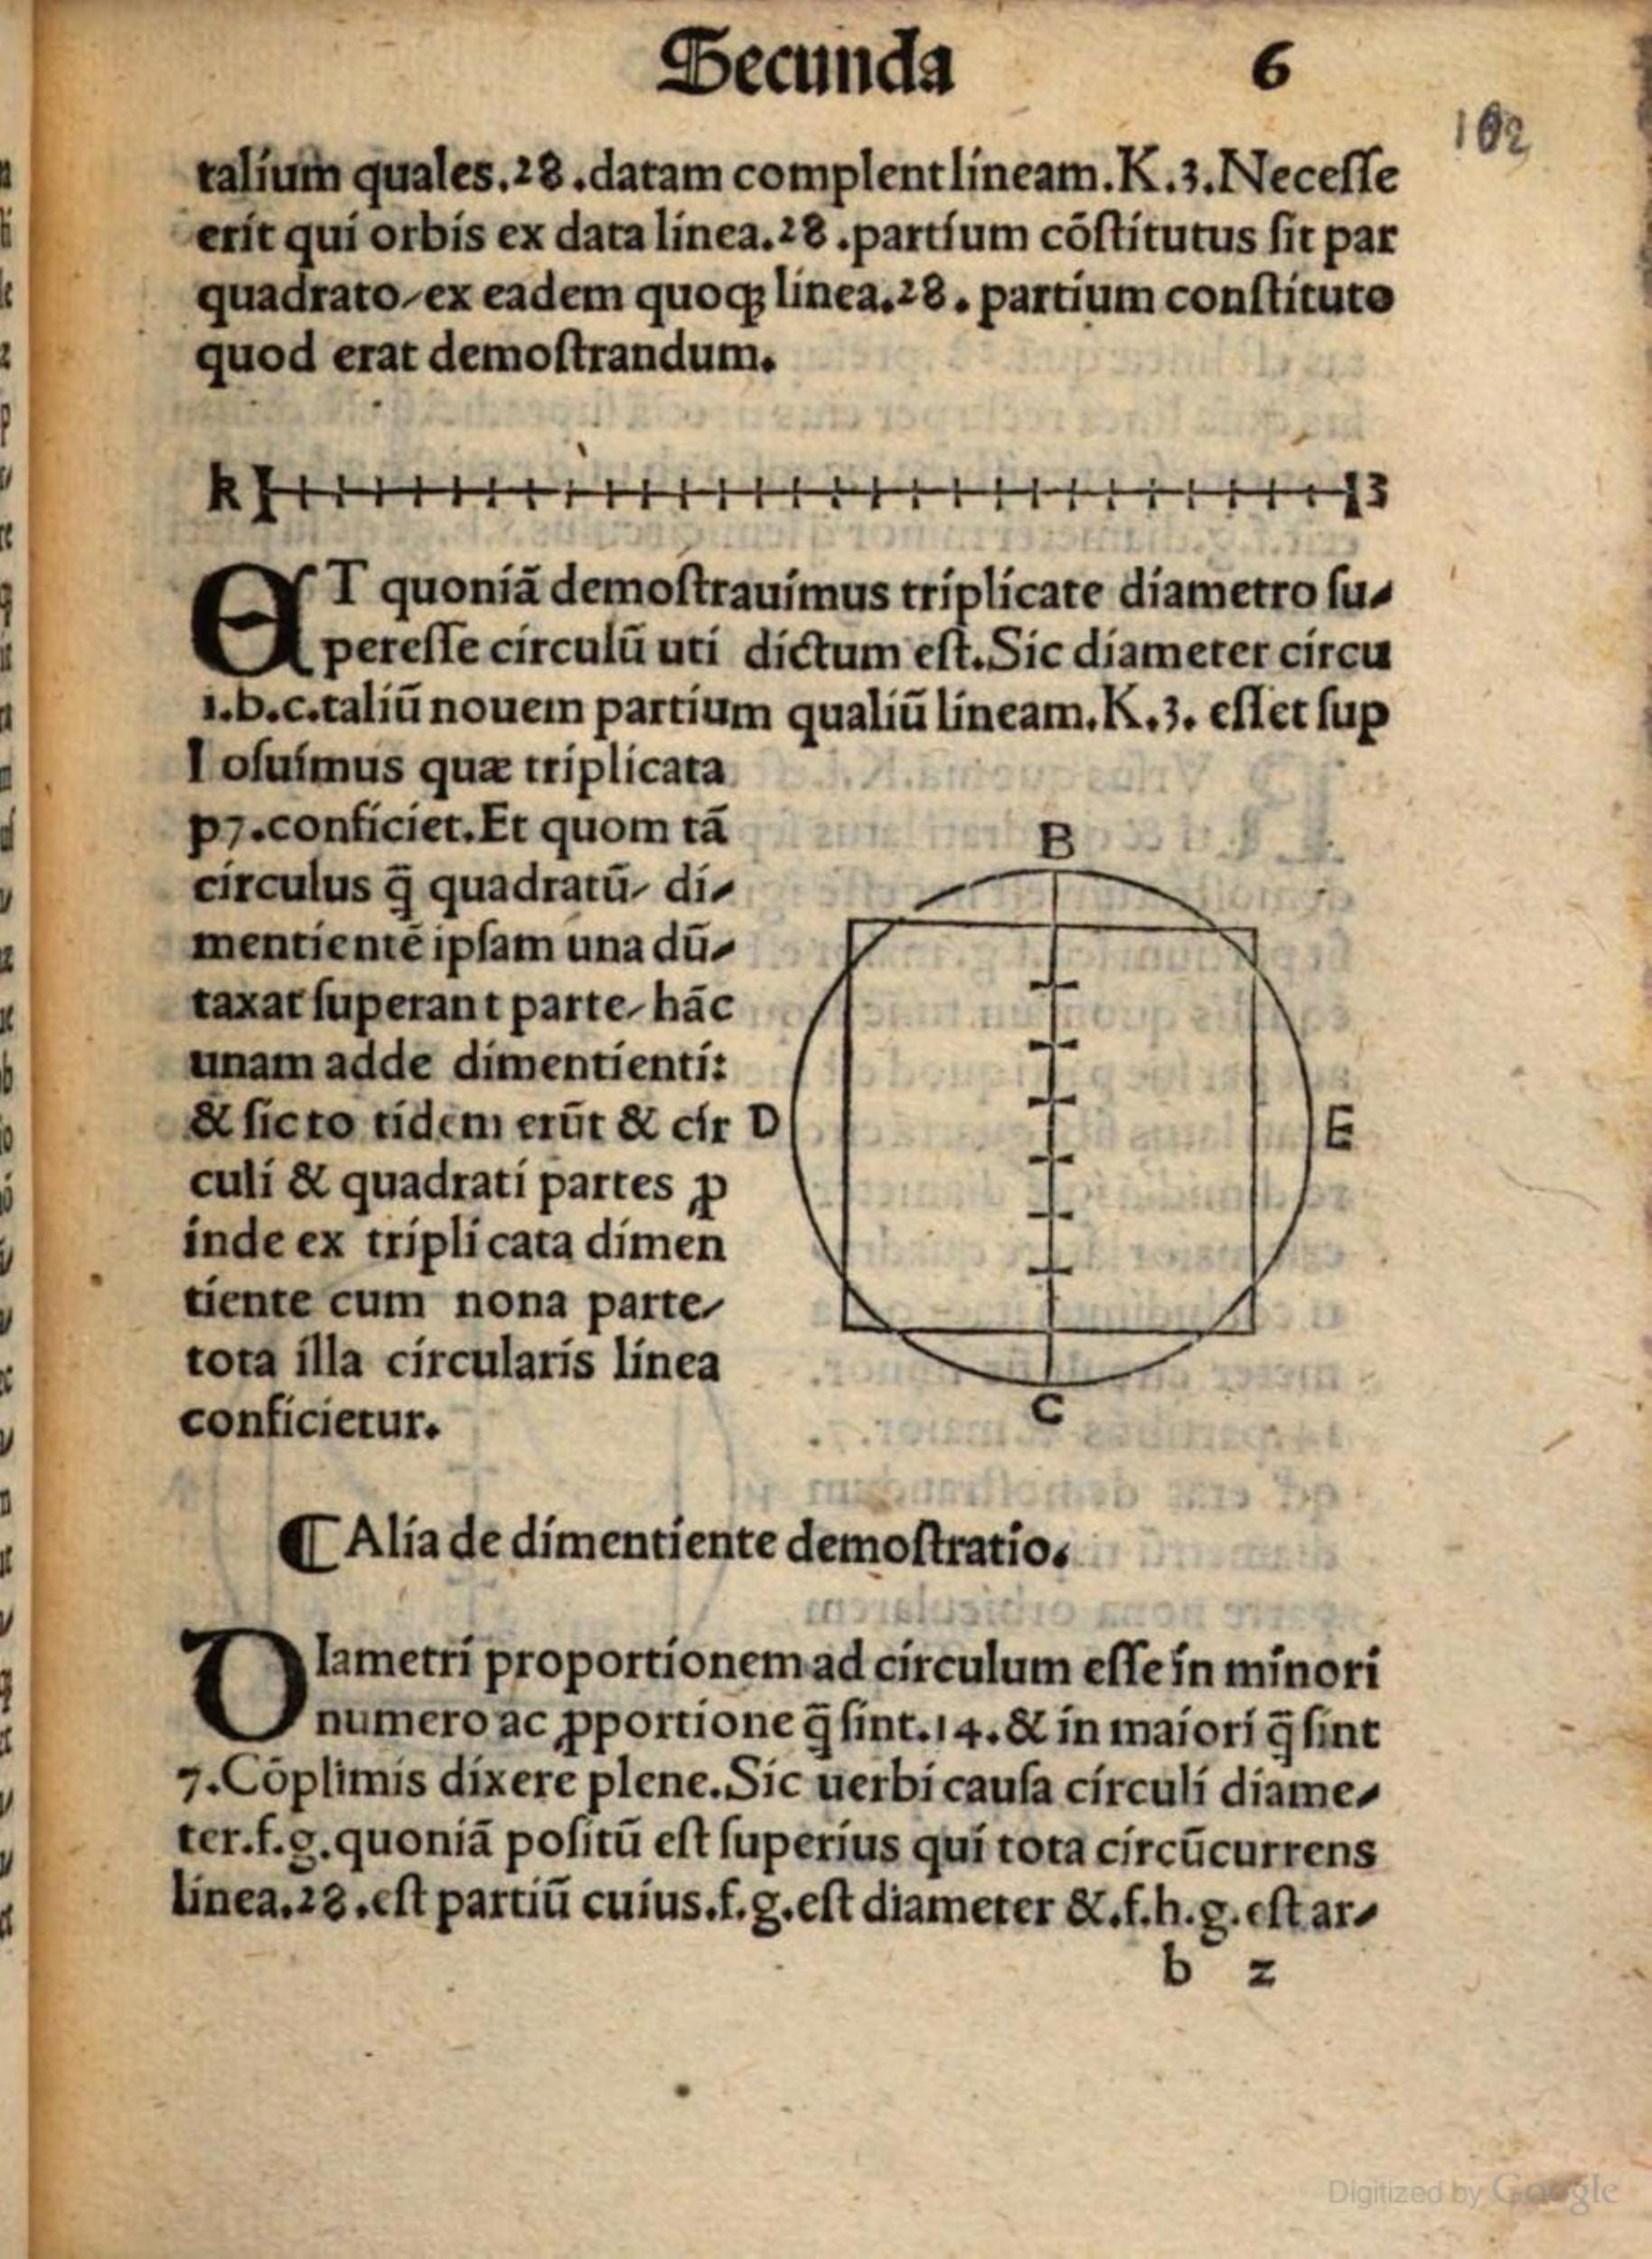 Secunda 6
102
talium quales.28.datam complent lineam.K.3.Necesſe
erit qui orbis ex data linea.28.partium cōſtitutus ſit par
quadrato/ex eadem quoq; linea.28. partium conſtituto
quod erat demoſtrandum.
k 3
ET quoniā demoſtrauimus triplicate diametro ſu/
pereſſe circulū uti dictum eſt.Sic diameter circu
1.b.c.taliū nouem partium qualiū lineam.K.3. eſſet ſup
I oſuimus quæ triplicata
p7.conficiet.Et quom tā
B
circulus q̄ quadratū/ di/
mentientē ipſam una dū/
taxat ſuperant parte/hāc
unam adde dimentienti:
& ſic to tidem erūt & cir
D
E
culi & quadrati partes ꝓ
inde ex tripli cata dimen
tiente cum nona parte/
tota illa circularis linea
conficietur.
C
¶Alia de dimentiente demoſtratio.
DIametri proportionem ad circulum eſſe in minori
numero ac ꝓportione q̄ ſint.14.& in maiori q̄ ſint
7.Cōplimis dixere plene.Sic uerbi cauſa circuli diame/
ter.f.g.quoniā poſitū eſt ſuperius qui tota circūcurrens
linea.28.eſt partiū cuius.f.g.eſt diameter &.f.h.g.eſt ar/
b 2
Digitized by Google